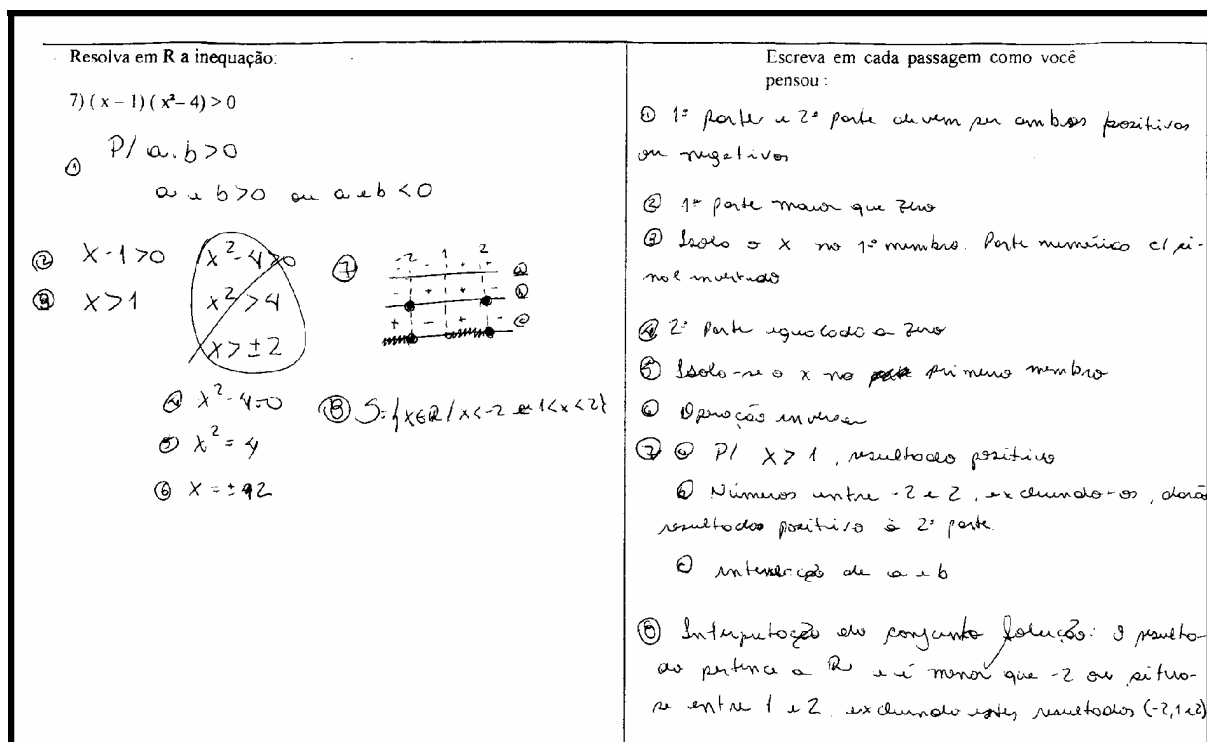 Resolva em R a inequação:
7) ( x – 1) ( x² – 4) > 0
① P/ a.b>0
a e b>0 ou a e b <0
② x-1>0
③ x>1
x²-4>0
x²>4
x>±2
④ x²-4=0
⑤ x²=4
⑥ x=±2
⑦
-2 1 2
- - + + ⓐ
- + + - ⓑ
+ - + - ⓒ
⑧ S={x∈R/x<-2 e 1<x<2}
Escreva em cada passagem como você
pensou :
① 1ª parte e 2ª parte devem ser ambos positivos
ou negativos
② 1ª parte maior que zero
③ Isolo o x no 1º membro. Parte numérica c/ si-
nal invertido
④ 2ª Parte igualada a zero
⑤ Isola-se o x no primeiro membro
⑥ Operação inversa
⑦ ⓐ P/ x>1, resultado positivo
ⓑ Números entre -2 e 2, excluindo-os, darão
resultados positivo à 2ª parte.
ⓒ interseção de a e b
⑧ Interpretação do conjunto Solução: O resulta-
do pertence a R e é menor que -2 ou situa-
se entre 1 e 2, excluindo estes resultados (-2,1 e 2)